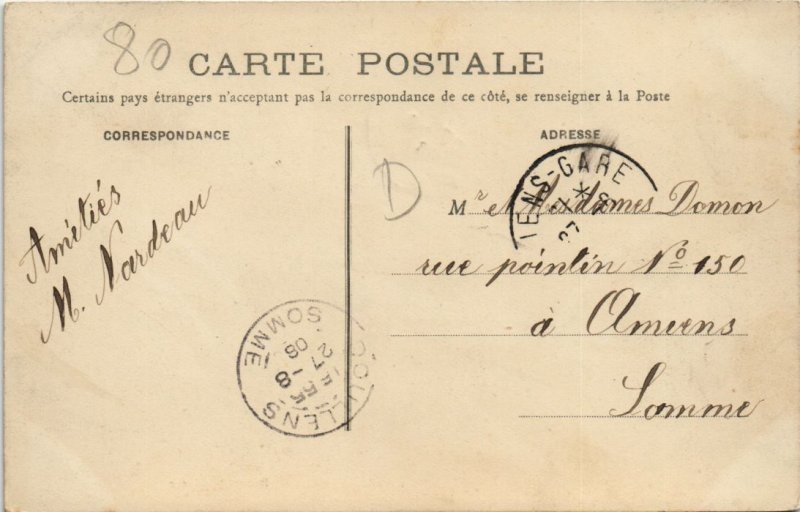 80
CARTE POSTALE
Certains pays étrangers n'acceptant pas la correspondance de ce côté, se renseigner à la Poste
CORRESPONDANCE
ADRESSE
D
Amitiés
M. Nardeau
IENS-GARE
Mr et Mesdames Domon
rue pointin No 150
à Amiens
Somme
DOULLENS
SOMME
27
-8
08